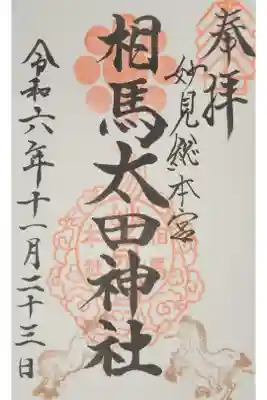 奉拝
妙見総本宮
相馬太田神社
令和六年十一月二十三日